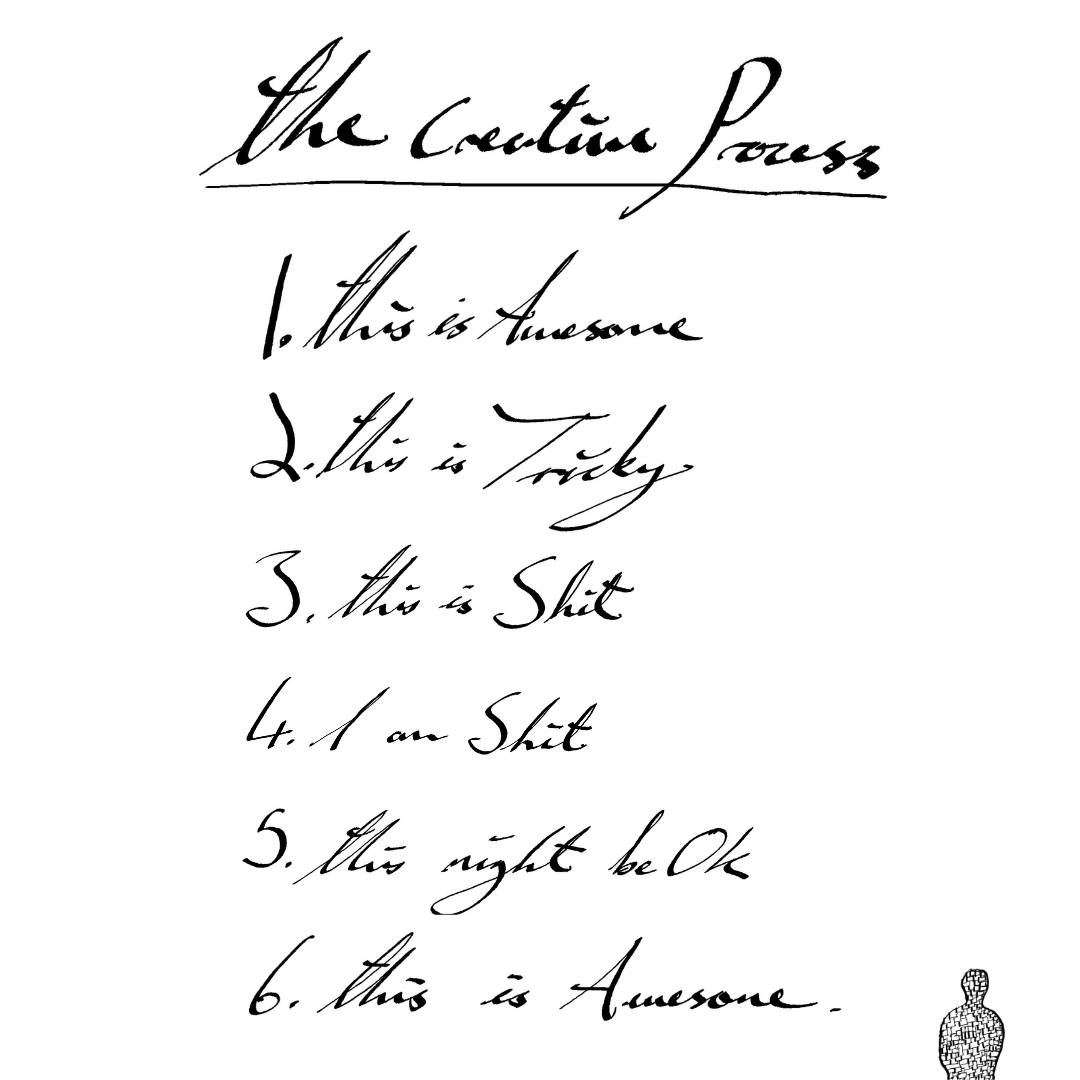 the Creative Process
1. this is Awesome
2. this is Tricky
3. this is Shit
4. I am Shit
5. this might be Ok
6. this is Awesome.